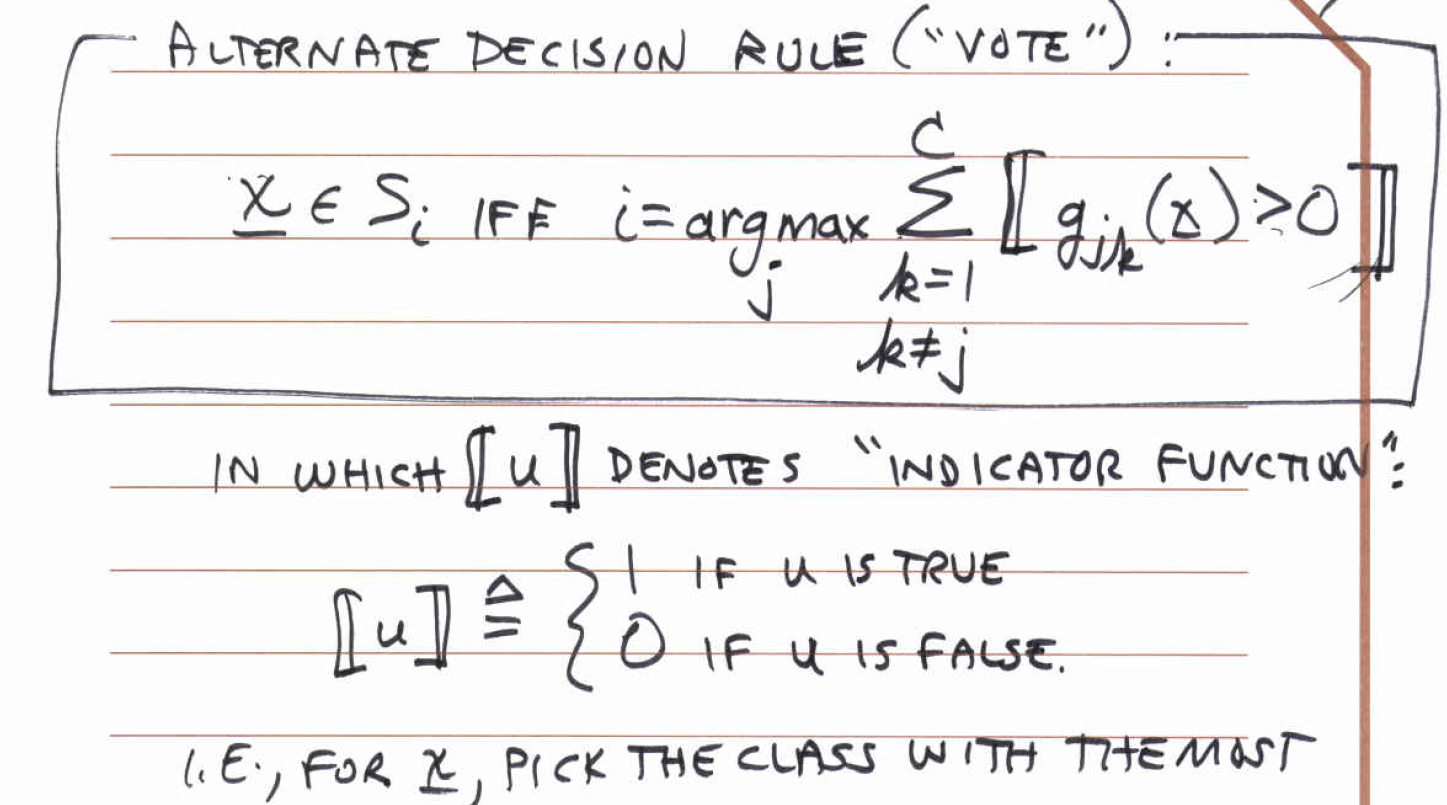 ALTERNATE DECISION RULE ("VOTE"):
x ∈ Sᵢ IFF i = argmax_j Σ_{k=1, k≠j}^{C} ⟦ g_{jk}(x) ≥ 0 ⟧
IN WHICH ⟦u⟧ DENOTES "INDICATOR FUNCTION":
⟦u⟧ ≜ { 1 IF u IS TRUE
0 IF u IS FALSE.
I.E., FOR x, PICK THE CLASS WITH THE MOST